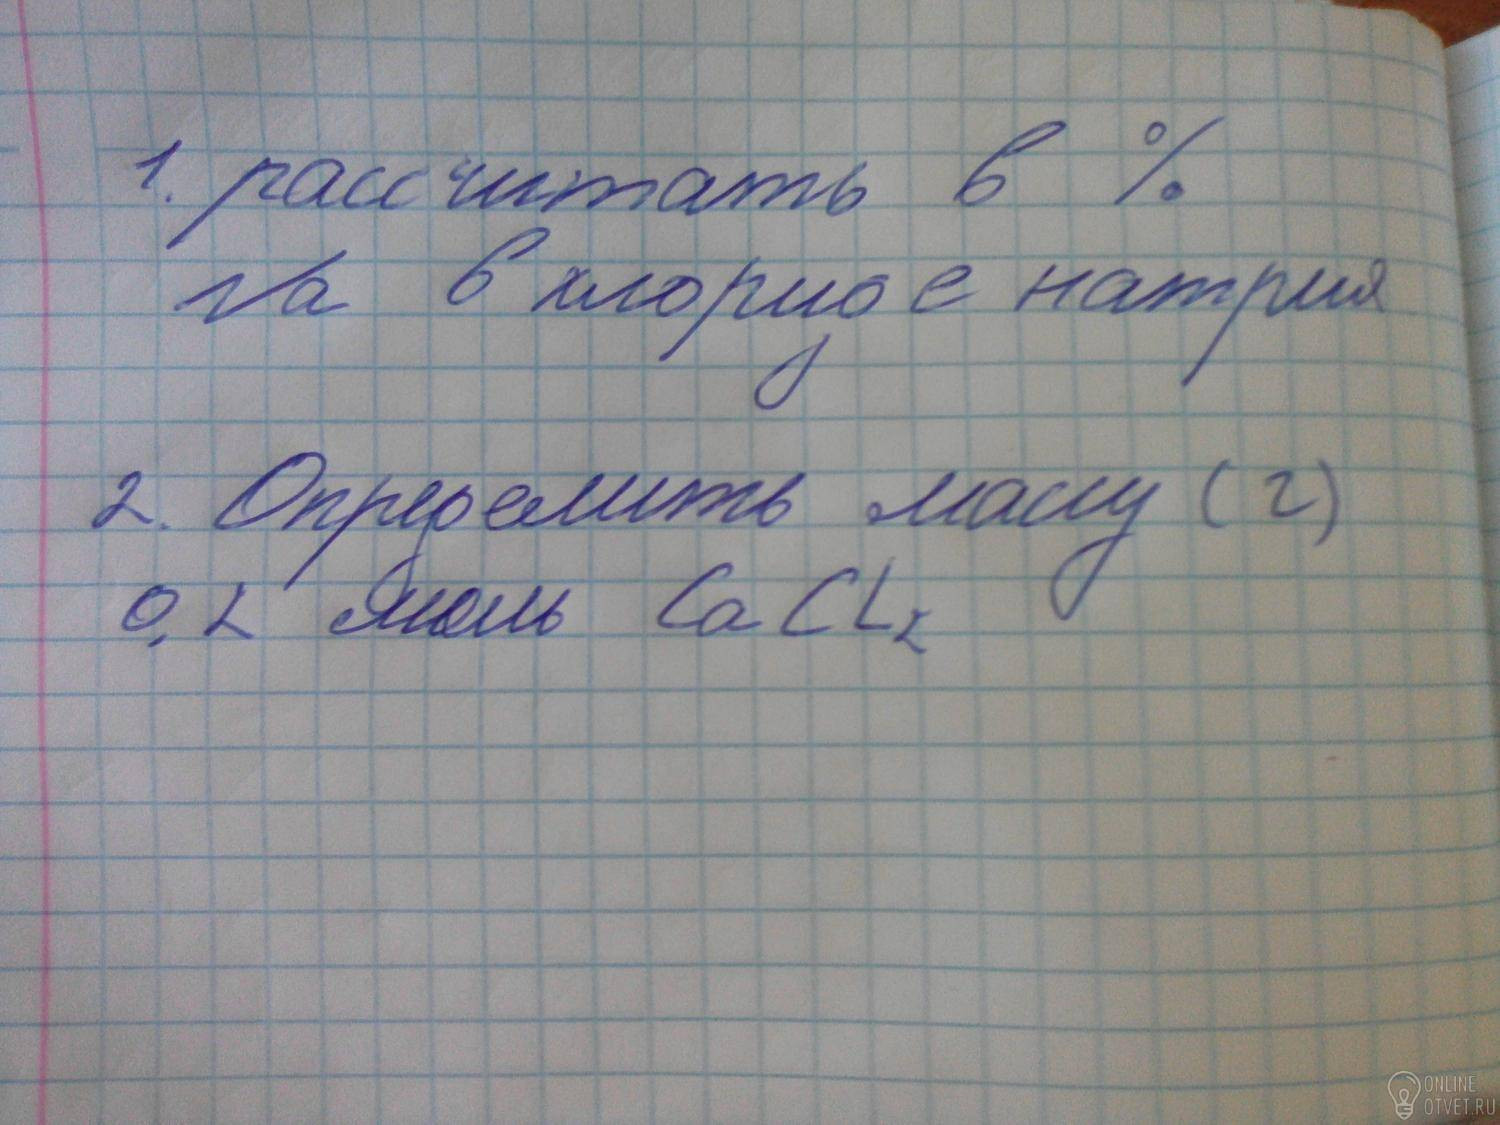 1. рассчитать в %
Na в хлориде натрия
2. Определить массу (г)
0,2 моль CaCL₂
ONLINE
OTVET.RU